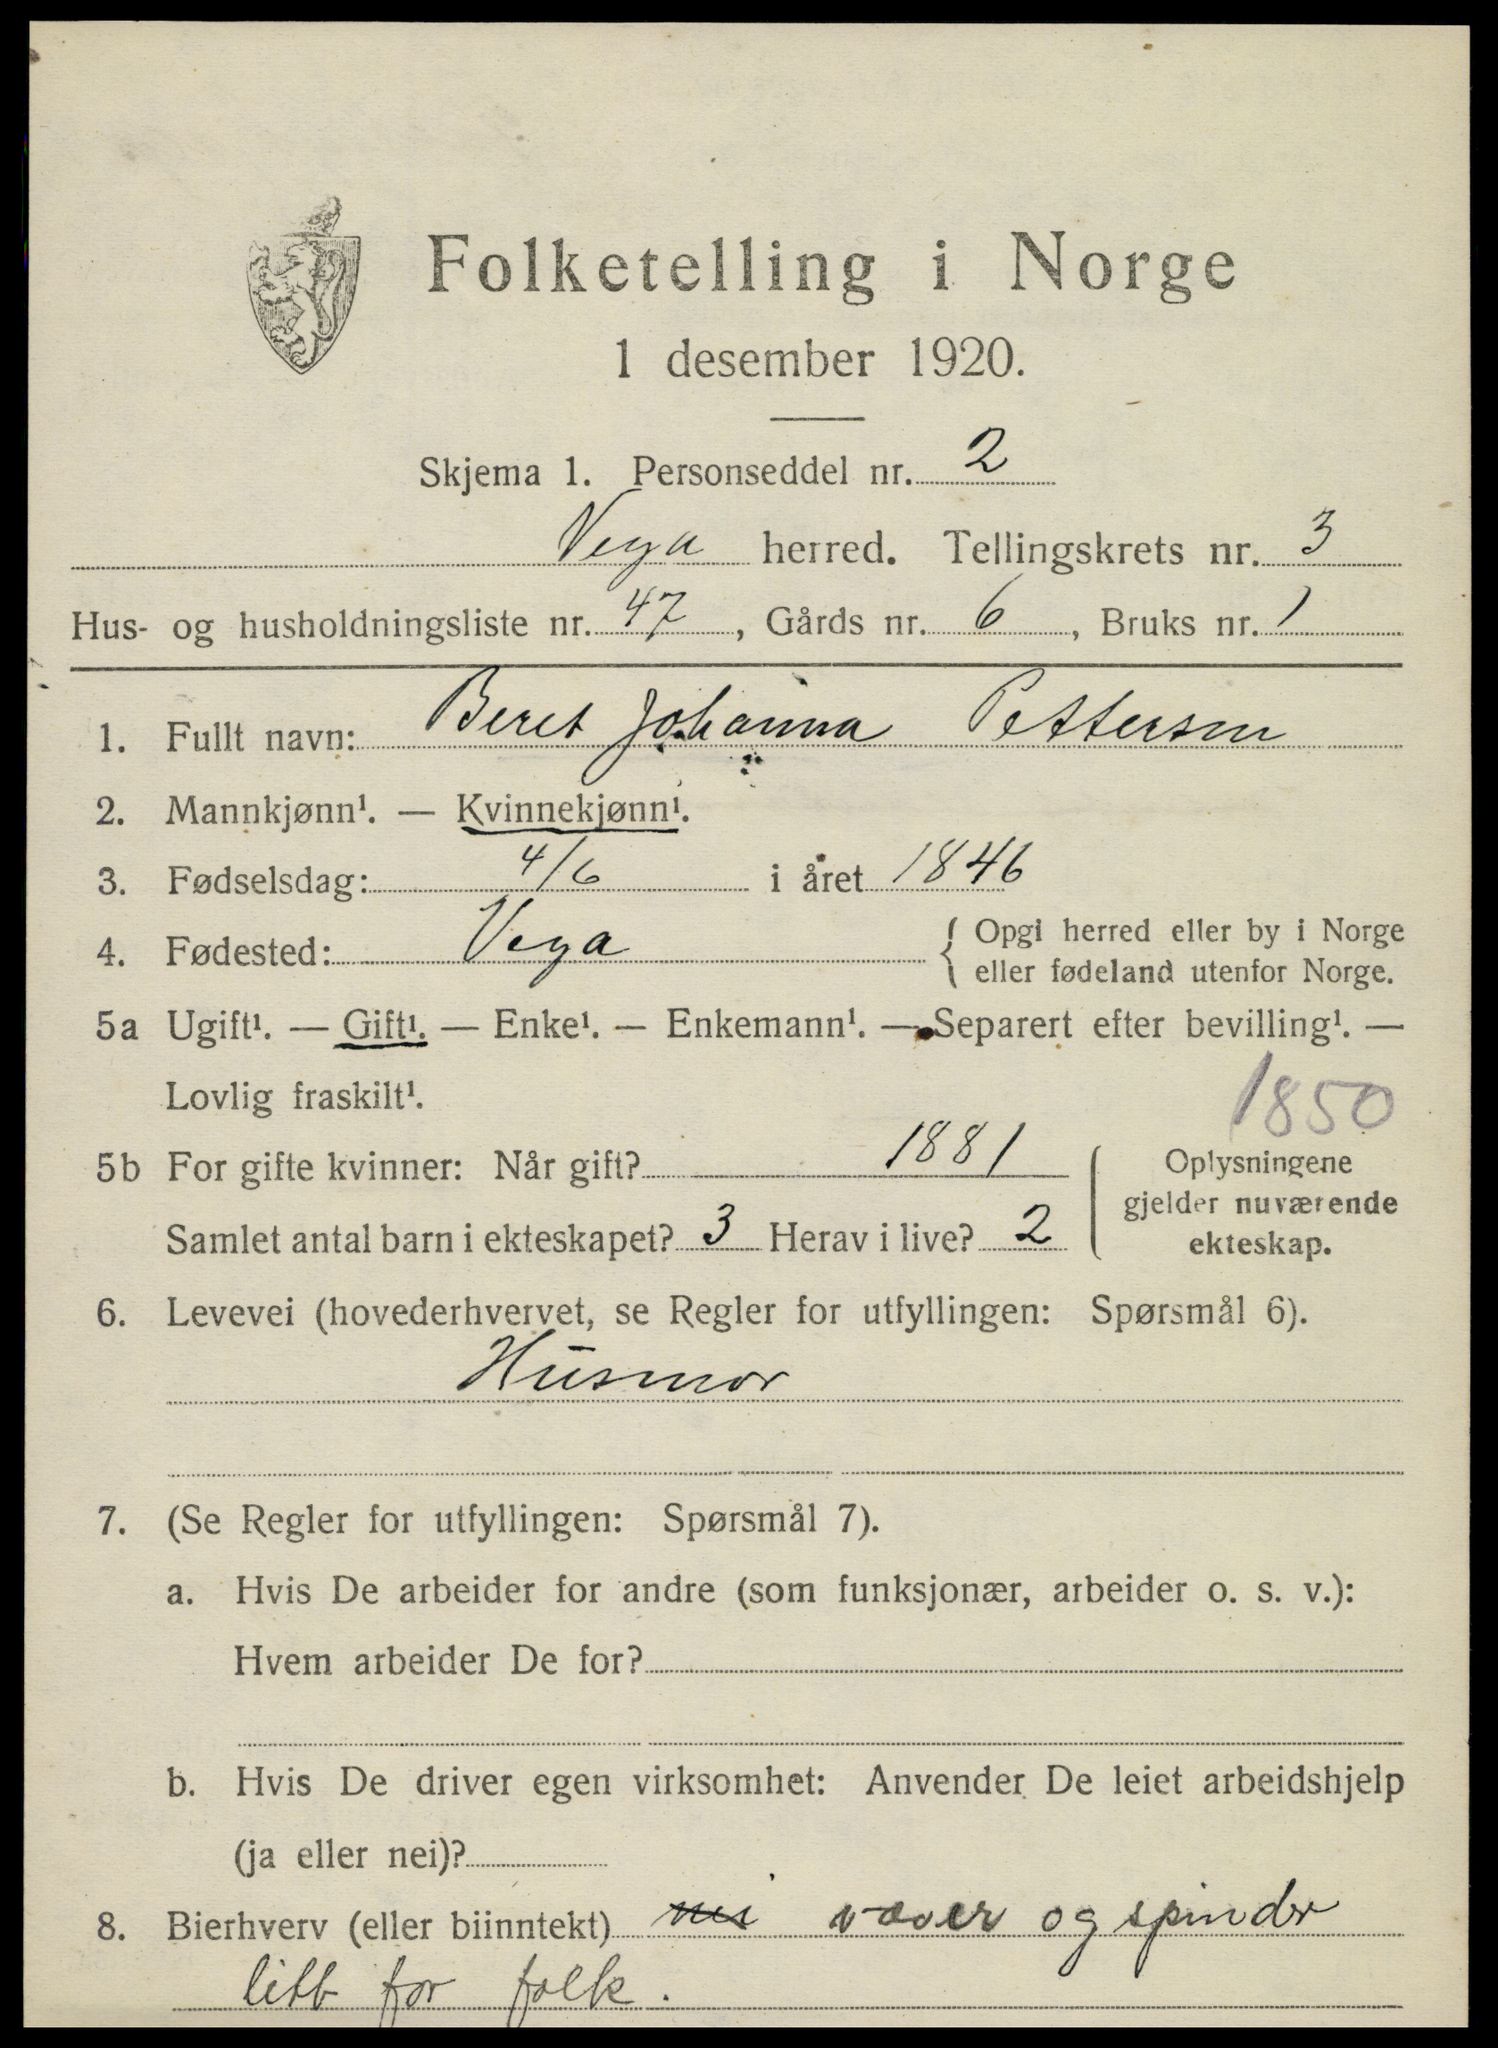 Folketelling i Norge
1 desember 1920.
Skjema 1. Personseddel nr. 2
Vega herred. Tellingskrets nr. 3
Hus- og husholdningsliste nr. 47, Gårds nr. 6, Bruks nr. 1
1. Fullt navn: Beret Johanna Pettersen
2. Mannkjønn¹. — Kvinnekjønn¹.
3. Fødselsdag: 4/6 i året 1846
4. Fødested: Vega { Opgi herred eller by i Norge
eller fødeland utenfor Norge.
5a Ugift¹. — Gift¹. — Enke¹. — Enkemann¹. — Separert efter bevilling¹. —
Lovlig fraskilt¹.
1850
5b For gifte kvinner: Når gift? 1881
Samlet antal barn i ekteskapet? 3 Herav i live? 2
Oplysningene
gjelder nuværende
ekteskap.
6. Levevei (hovederhvervet, se Regler for utfyllingen: Spørsmål 6).
Husmor
7. (Se Regler for utfyllingen: Spørsmål 7).
a. Hvis De arbeider for andre (som funksjonær, arbeider o. s. v.):
Hvem arbeider De for?
b. Hvis De driver egen virksomhet: Anvender De leiet arbeidshjelp
(ja eller nei)?
8. Bierhverv (eller biinntekt) nei væver og spinder
litt for folk.